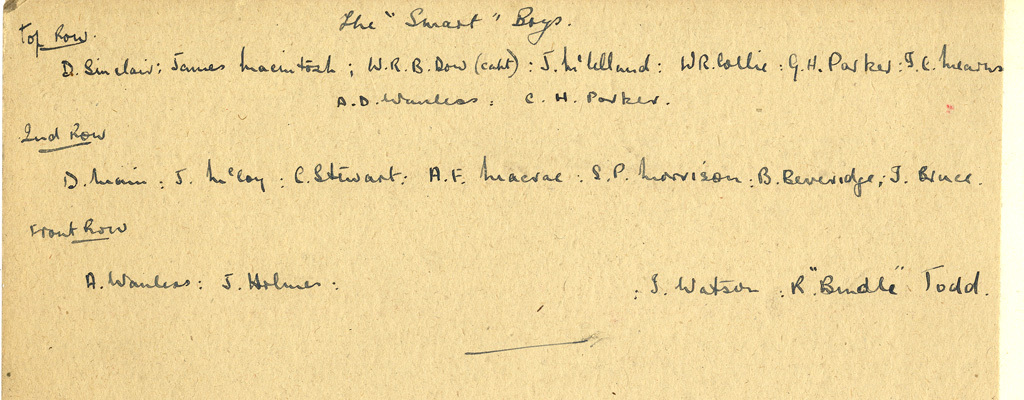 The "Smart" Boys.
Top Row.
D. Sinclair; James Macintosh; W.R.B. Dow (capt): J. McLelland: W.R. Collie: G.H. Parker: J.C. Mearns
A.D. Wanless: C. H. Parker.
2nd Row
D. Main: J. McCoy: C. Stewart: A.F. Macrae: S.P. Morrison: B. Beveridge; J. Bruce.
Front Row
A. Wanless: J. Holmes: : J. Watson: R "Bindle" Todd.